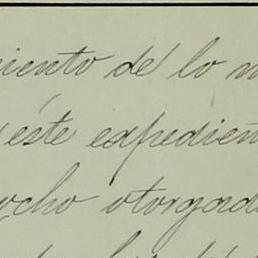 iento de lo m
éste expedien
ocho otorgad